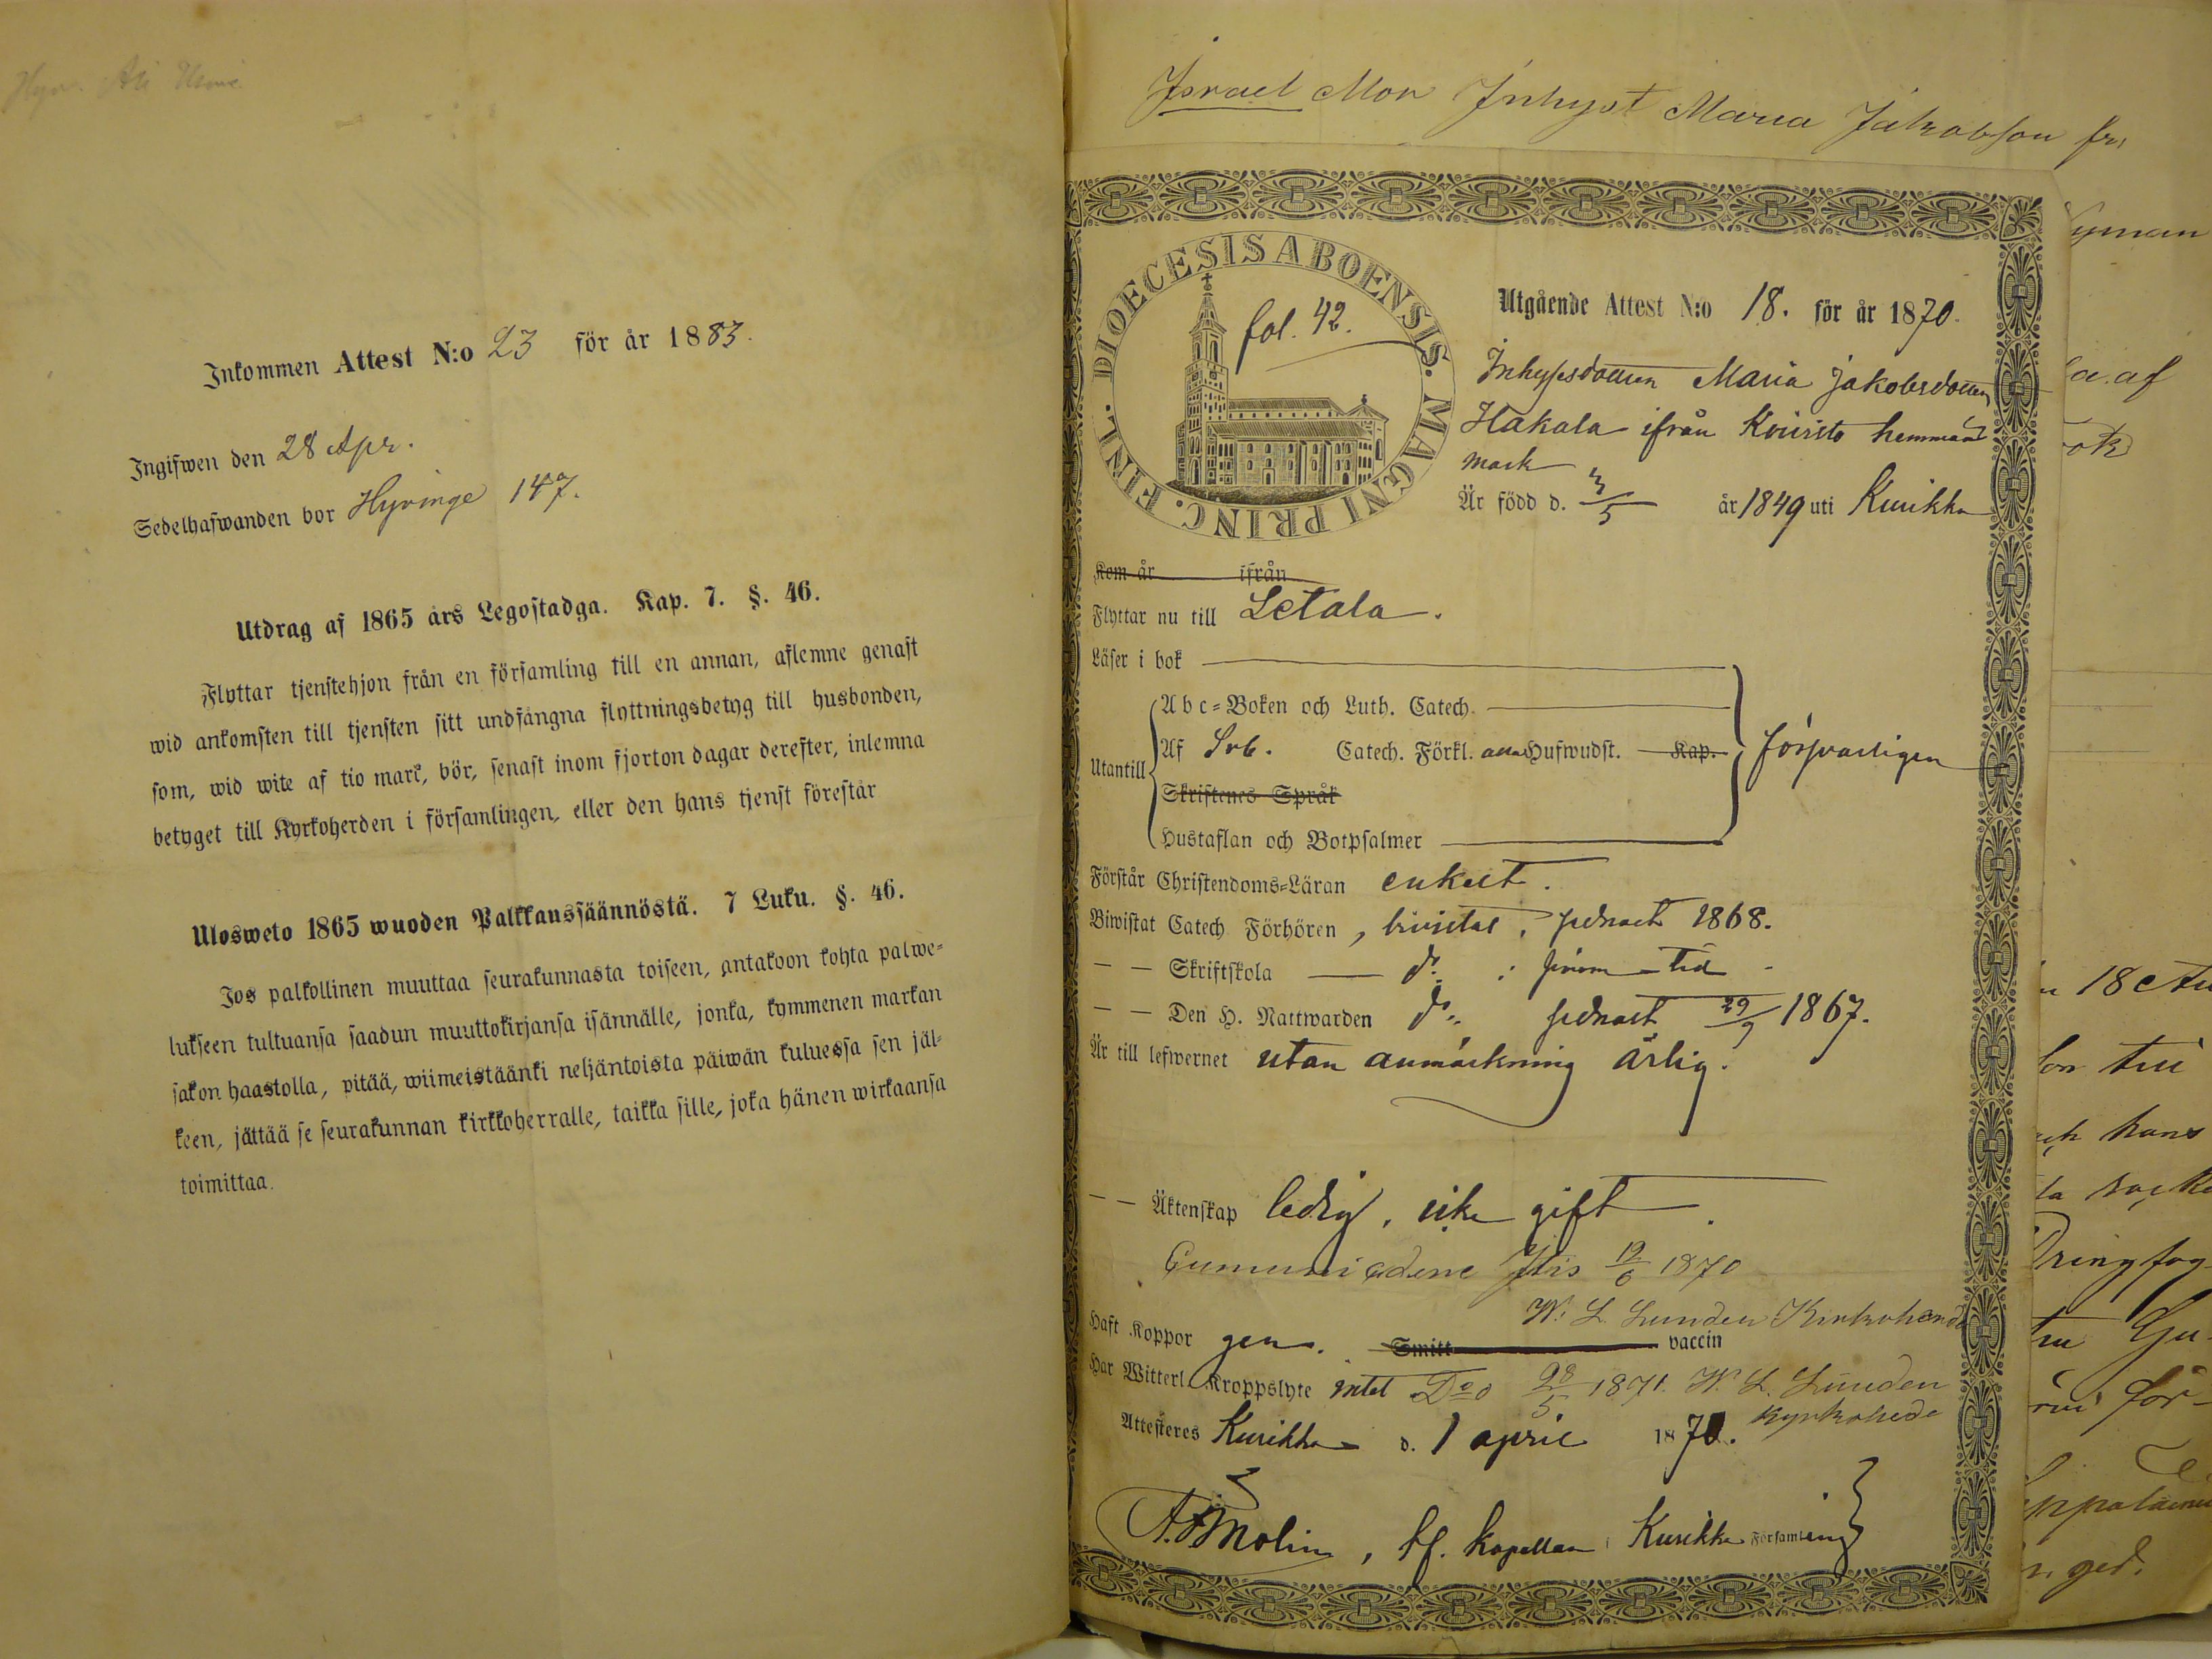 Inkommen Attest N:o 23 för år 1883.
Ingifwen den 28 Apr.
Sedelhafwanden bor Hyvinge 147.
Utdrag af 1865 års Legostadga. Kap. 7. §. 46.
Flyttar tjenstehjon från en församling till en annan, aflemne genast
wid ankomsten till tjensten sitt undfångna flyttningsbetyg till husbonden,
som, wid wite af tio mark, bör, senast inom fjorton dagar derefter, inlemna
betyget till Kyrkoherden i församlingen, eller den hans tjenst förestår
Ulosweto 1865 wuoden Palkkaussäännöstä. 7 Luku. §. 46.
Jos palkollinen muuttaa seurakunnasta toiseen, antakoon kohta palwe-
lukseen tultuansa saadun muuttokirjansa isännälle, jonka, kymmenen markan
sakon haastolla, pitää, wiimeistäänki neljäntoista päiwän kuluessa sen jäl-
keen, jättää se seurakunnan kirkkoherralle, taikka sille, joka hänen wirkaansa
toimittaa.
Israel Mon Inhyst Maria Jakobson fr
DIOECESIS ABOENSIS. MAGNI PRINC. FINL.
fol. 42.
Utgående Attest N:o 18. för år 1870.
Inhysesdottren Maria Jakobsdotter
Hakala ifrån Koivisto hemmans
mark
Är född d. 3/5 år 1849 uti Kurikka
Kom år ifrån
Flyttar nu till Letala.
Läser i bok
Abc-Boken och Luth. Catech.
Utantill Af Svb. Catech. Förkl. alla Hufwudst. Kap. försvarligen
Skriftenes Språk
Hustaflan och Botpsalmer
Förstår Christendoms-Läran enkelt.
Biwistat Catech Förhören, bivistat, sednast 1868.
— — Skriftskola — d:o i sinom tid
— — Den H. Nattwarden d:o sednast 29/9 1867.
Är till lefwernet utan anmärkning ärlig.
— — Äktenskap ledig, icke gift.
12/6 1870
W. L. Lunden Kyrkoherde
Haft Koppor gen. Smitt vaccin
Har Witterl. Kroppslyte intet D:o 28/5 1871. W. L. Lunden
Kyrkoherde
Attesteres Kurikka d. 1 april 1870.
A. F. Molin, tf. kapellan i Kurikka Församling
yman
a. af
18 Au
hans
för-